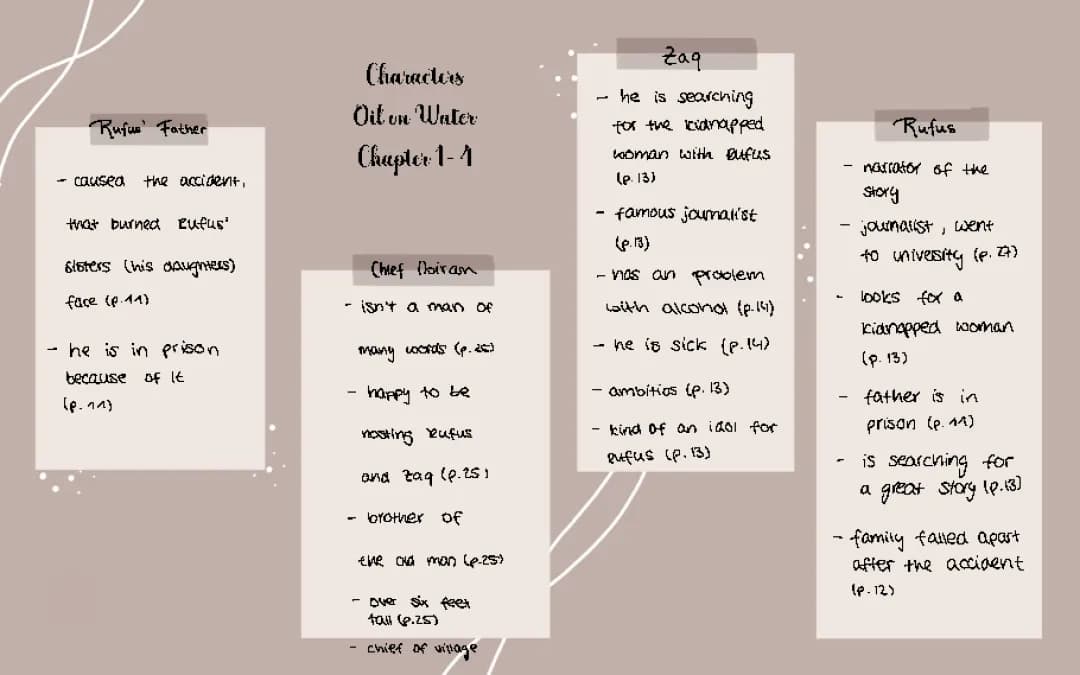 Characters
Oil on Water
Chapter 1-4
Rufus' Father
- caused the accident,
that burned Rufus'
sisters (his daughters)
face (p.11)
- he is in prison
because of it
(p.11)
Chief Ibiram
- isn't a man of
many words (p.25)
- happy to be
hosting Rufus
and Zaq (p.25)
- brother of
the old man (p.25)
- over six feet
tall (p.25)
- chief of village
Zaq
- he is searching
for the kidnapped
woman with Rufus
(p.13)
- famous journalist
(p.13)
- has an problem
with alcohol (p.14)
- he is sick (p.14)
- ambitios (p.13)
- kind of an idol for
Rufus (p.13)
Rufus
- narrator of the
story
- journalist, went
to university (p.27)
- looks for a
kidnapped woman
(p.13)
- father is in
prison (p.11)
- is searching for
a great story (p.13)
- family falled apart
after the accident
(p.12)